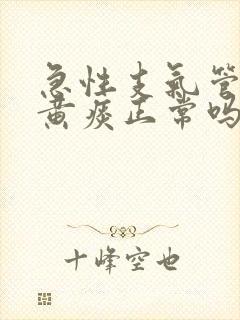 急性支氣管
黄痰正常吗
十峰空也